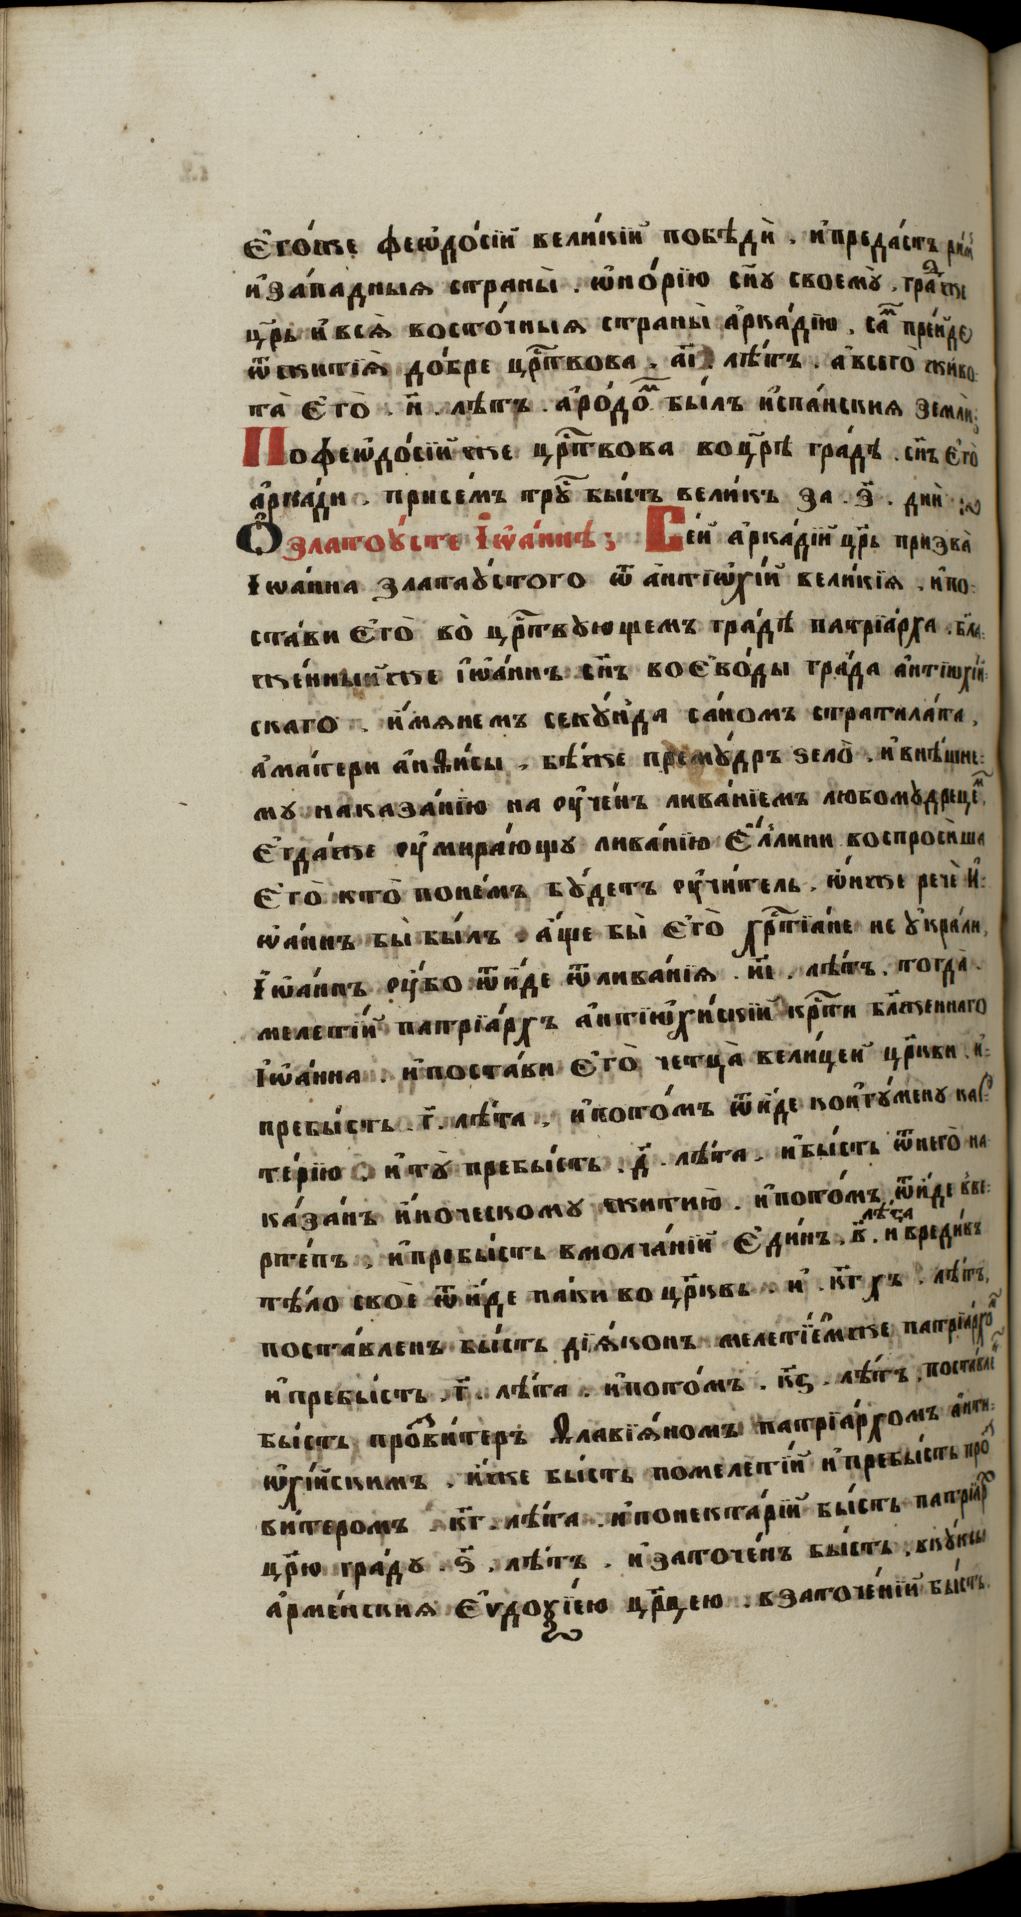 Єго́же фею҆до́сїй вели́кїй побѣди̇̀ . и҆преда́стъ ри́м
и҆за́падныѧ страны̀ . ѡ҆но́рїю сн҃у своемꙋ̀ . граⷣже
цр҃ь и҆всѧ̀ восто́чныѧ страны̀ а҆рка́дїю . саⷨ преи́де
ѿжитїѧ̀ до́бре црⷭ҇твова . а҃і . лѣ́тъ . а҆всегѡ̀ живо
та̀ Єго̀ . н҃ . лѣтъ . а҆ро́доⷨ бы́лъ и҆спа́нскиѧ землѝ ;
Пофеѡдо́сїй же црⷭ҇твова во цр҃ѣ гра́дѣ . сн҃ъ є҆го̀
а҆рка́ди . присе́мъ трꙋⷭ бы́сть вели́къ за . з҃ . днй :~
Ѽ златоу́сте І҆ѡа́ннѣ ; Се́й а҆рка́дїй цр҃ь призва̀
Іѡа́нна златаꙋ́стого ѿ а҆нтїѡхі́й вели́кїѧ . и҆по
ста́ви Єго̀ во̀ црⷭ҇твꙋющемъ гра́дѣ патрїа́рха . бл҃а
же́нный же і҆ѡа́ннъ сн҃ъ воєво́ды гра́да а҆нтїѡхі́й
скаго . и҆́мѧнемъ секꙋ́нда са́номъ стратила́та ,
а҆ма́тери а҆нѳи́сы . бѣ́же премꙋ́дръ ѕело̀ . и҆внѣ́шне
мꙋ наказа́нїю на оу҆че́нъ лива́нїемъ любомꙋдрецеⷨ ,
Єгда́же оу҆мира́ющꙋ лива́нїю Єллини воспроси́ша
Єго̀ кто̀ поне́мъ бꙋ́детъ оу҆чи́тель . ѡ҆́нже речѐ И҆
ѡа́ннъ бы̀ бы́лъ . а҆́ще бы̀ Єго̀ хрⷭ҇тїа́не не ꙋ҆кра́ли ,
І҆ѡа́ннъ оу҆́бо ѿи́де ѿлива́нїѧ . и҃і . лѣ́тъ . тогда̀ .
меле́тїй патрїа́рхъ а҆нтїѡхи́нскїй крⷭ҇ти бл҃же́ннаго
І҆ѡа́нна . и҆поста́ви Єго̀ четца̀ вели́цей цр҃кви . и҆
пребы́сть . г҃ . лѣ́та . и҆пото́мъ ѿи́де кои҆гꙋ́менꙋ каⷬ
те́рїю . и҆тꙋ̀ пребы́сть . д҃ . лѣ́та . и҆бы́сть ѿнего̀ на
ка́занъ и҆́ноческомꙋ житию̀ . и҆пото́мъ ѿи́де вве
рте́пъ , и҆пребы́сть вмолча́нїй Єди́нъ . в҃ . лѣ́та и҆вреди́въ
тѣ́ло своѐ ѿи́де па́ки во цр҃ковь . и҆ . к҃г хъ . лѣ́тъ ,
поста́вленъ бы́сть дїѧ́конъ меле́тїеⷨже патрїа́рхоⷨ
и҆пребы́сть . г҃ . лѣ́та . и҆пото́мъ . к҃ѕ . лѣ́тъ . поста́влеⷩ
бы́сть проⷥви́теръ Ѳлавїѧ́номъ патрїа́рхомъ а҆нти
ѡхі́йскимъ . и҆́же бы́сть помеле́тїй и҆пребы́сть проⷥ
ви́теромъ . к҃г . лѣ́та . и҆понекта́рїй бы́сть патрїаⷬ҇
цр҃ю гра́дꙋ . ѕ҃ . лѣ́тъ . и҆заточе́нъ бы́сть . вкꙋ́ксы
а҆рме́нскиѧ Єѵдоѯі́ею цр҃цею . взаточе́нїй бы́сть